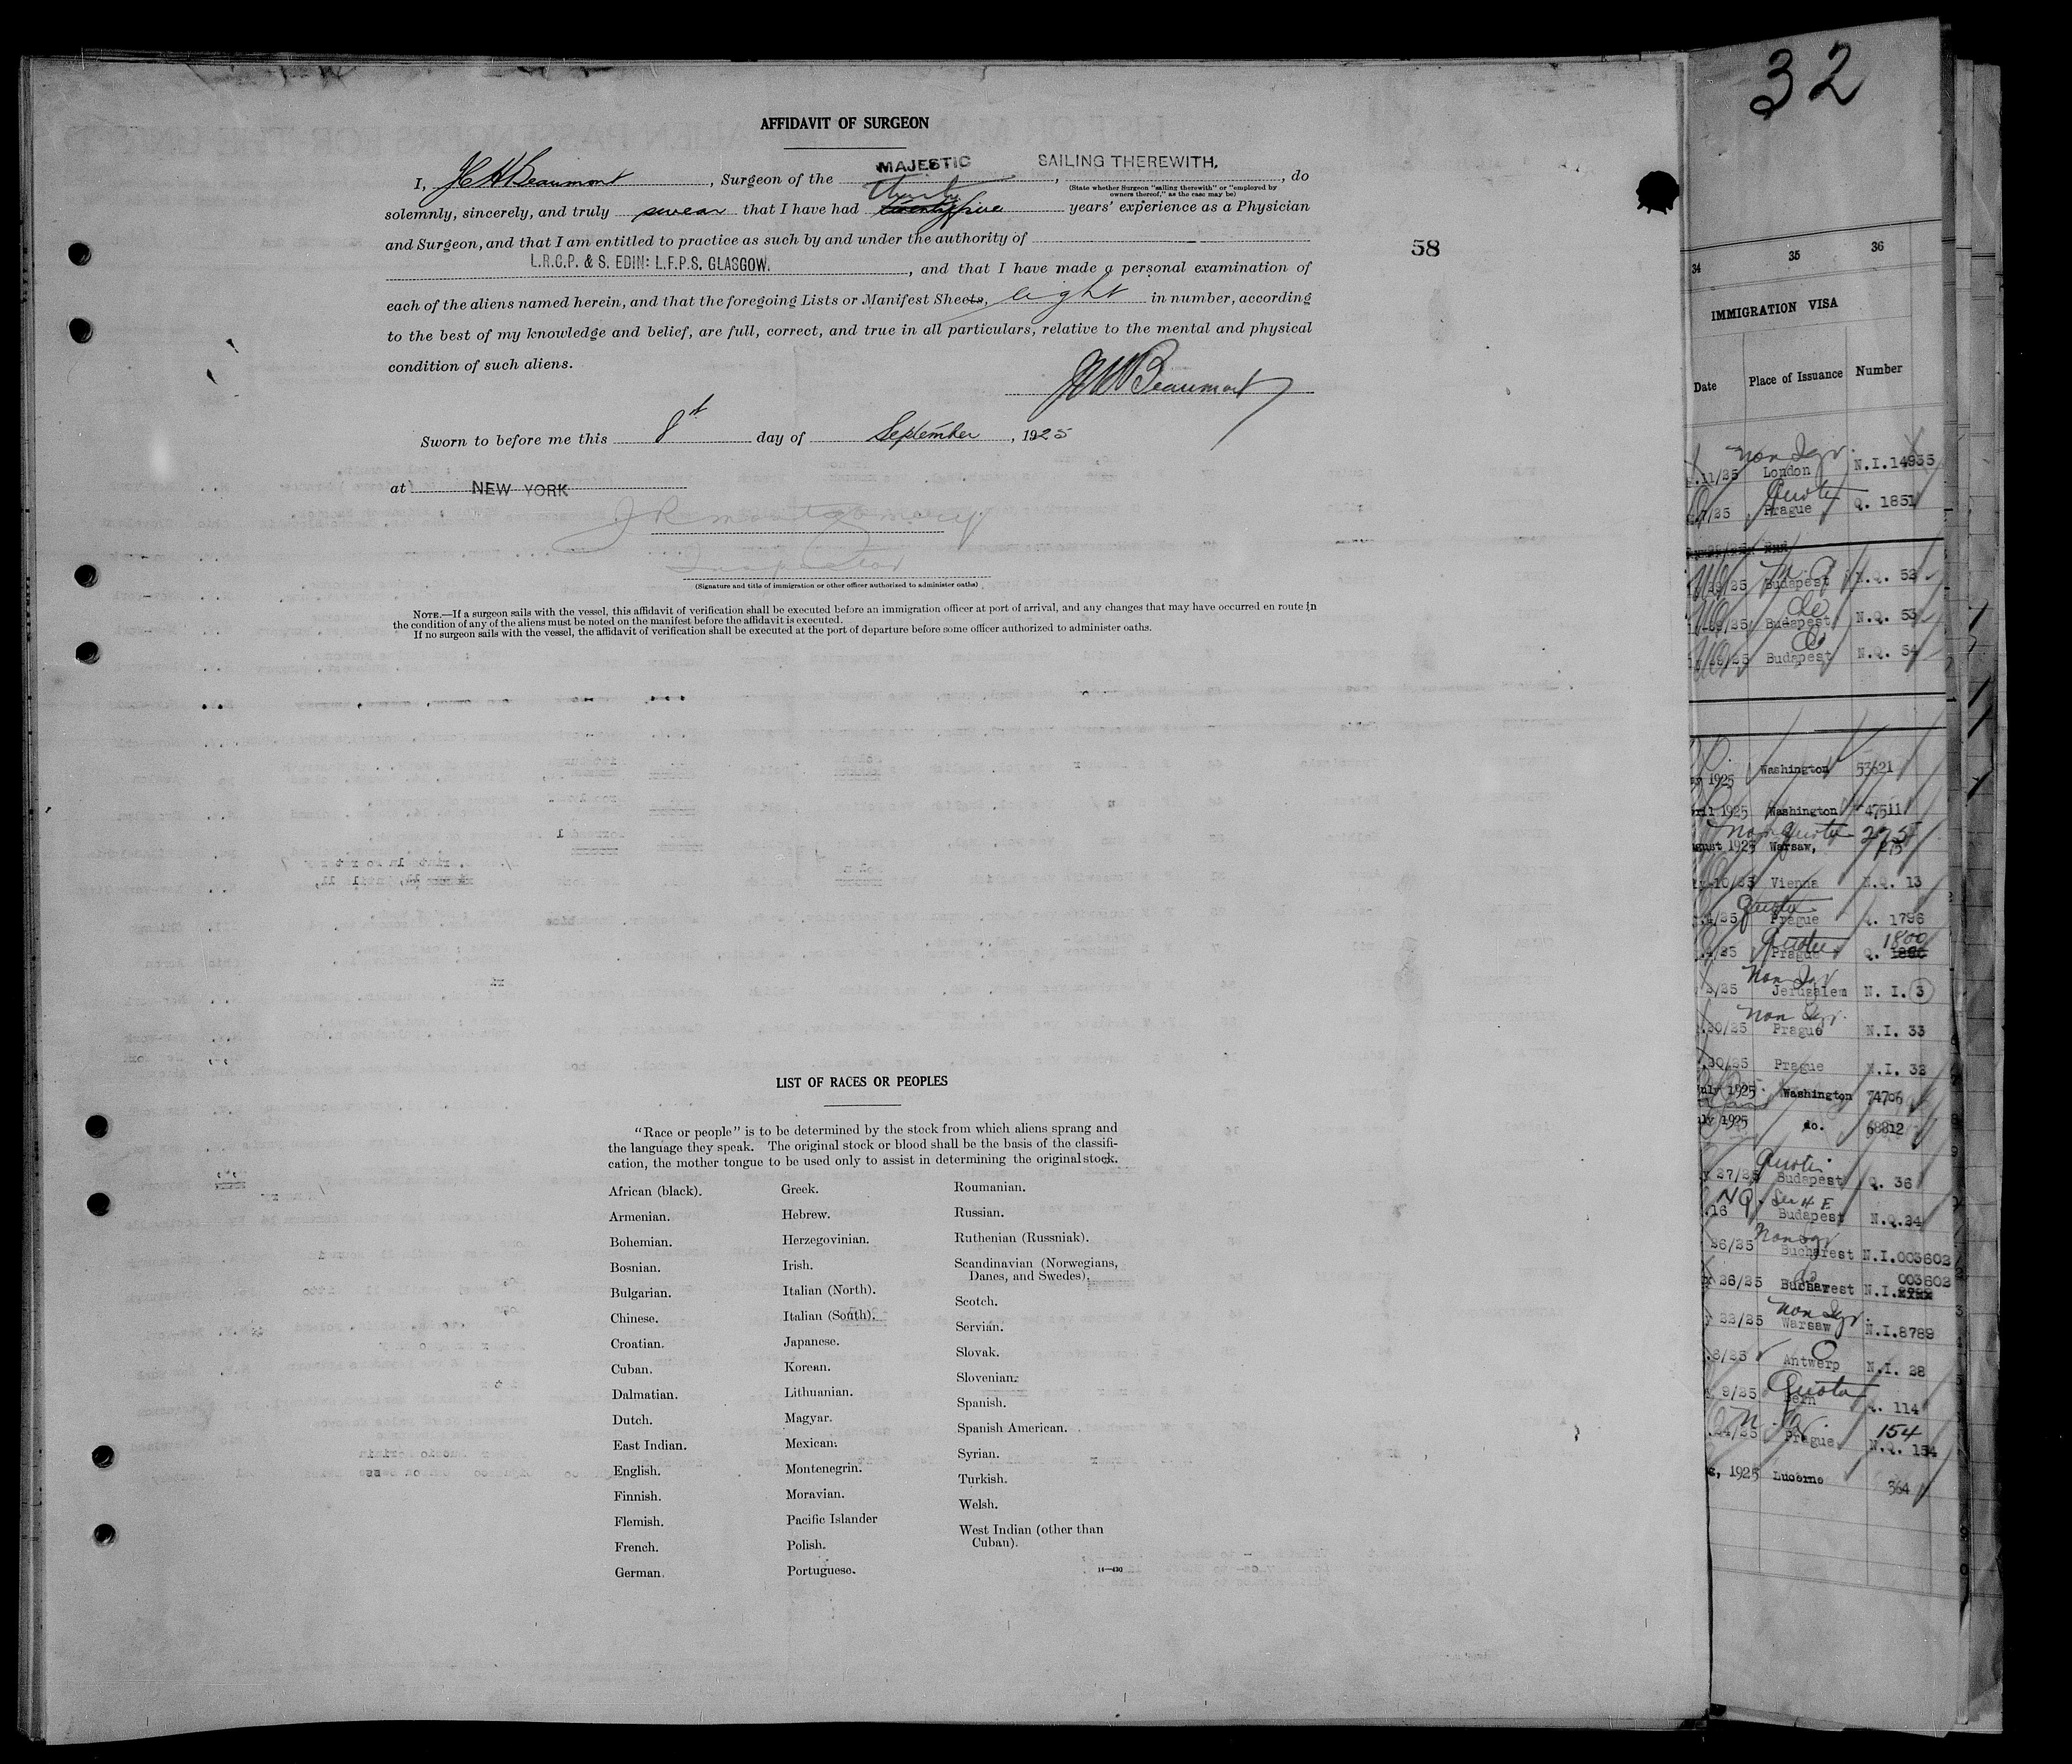 32
AFFIDAVIT OF SURGEON
I, J H Beaumont, Surgeon of the MAJESTIC, SAILING THEREWITH, do
(State whether Surgeon "sailing therewith" or "employed by
owners thereof," as the case may be)
solemnly, sincerely, and truly swear that I have had thirty twentyfive years' experience as a Physician
and Surgeon, and that I am entitled to practice as such by and under the authority of
L.R.C.P. & S. EDIN: L.F.P.S. GLASGOW. , and that I have made a personal examination of
each of the aliens named herein, and that the foregoing Lists or Manifest Sheets, eight in number, according
to the best of my knowledge and belief, are full, correct, and true in all particulars, relative to the mental and physical
condition of such aliens.
Beaumont
Sworn to before me this 8th day of September, 1925
at NEW YORK
J R Montgomery
Inspector
(Signature and title of immigration or other officer authorized to administer oaths)
NOTE.—If a surgeon sails with the vessel, this affidavit of verification shall be executed before an immigration officer at port of arrival, and any changes that may have occurred en route in
the condition of any of the aliens must be noted on the manifest before the affidavit is executed.
If no surgeon sails with the vessel, the affidavit of verification shall be executed at the port of departure before some officer authorized to administer oaths.
58
LIST OF RACES OR PEOPLES
"Race or people" is to be determined by the stock from which aliens sprang and
the language they speak. The original stock or blood shall be the basis of the classifi-
cation, the mother tongue to be used only to assist in determining the original stock.
African (black).
Armenian.
Bohemian.
Bosnian.
Bulgarian.
Chinese.
Croatian.
Cuban.
Dalmatian.
Dutch.
East Indian.
English.
Finnish.
Flemish.
French.
German.
Greek.
Hebrew.
Herzegovinian.
Irish.
Italian (North).
Italian (South).
Japanese.
Korean.
Lithuanian.
Magyar.
Mexican.
Montenegrin.
Moravian.
Pacific Islander
Polish.
Portuguese.
Roumanian.
Russian.
Ruthenian (Russniak).
Scandinavian (Norwegians,
Danes, and Swedes).
Scotch.
Servian.
Slovak.
Slovenian.
Spanish.
Spanish American.
Syrian.
Turkish.
Welsh.
West Indian (other than
Cuban).
14—430
34 35 36
IMMIGRATION VISA
Date Place of Issuance Number
Non Igr.
11/25 London N.I.14935
Quota
7/25 Prague Q. 1851
29/25 Budapest N.Q. 52
29/25 Budapest N.Q. 53
29/25 Budapest N.Q. 54
1925 Washington 53621
April 1925 Washington 47511
Non Quota 275
August 1925 Warsaw, 275
10/25 Vienna N.Q. 13
Quota
4/25 Prague Q. 1796
Quota 1800
4/25 Prague Q.
Non Igr
3/25 Jerusalem N. I. 3
Non Igr.
20/25 Prague N.I. 33
20/25 Prague N.I. 32
July 1925 Washington 74706
July 1925 do. 68812
Quota
27/25 Budapest Q. 36
NQ. Sec 4 E
16 Budapest N.Q.24
Non Igr
26/25 Bucharest N.I.003602
do 003602
26/25 Bucharest N.I.
Non Igr.
22/25 Warsaw N.I.8789
8/25 Antwerp N.I. 28
Quota
9/25 Bern Q. 114
154
24/25 Prague N.Q. 154
1925 Lucerne 364